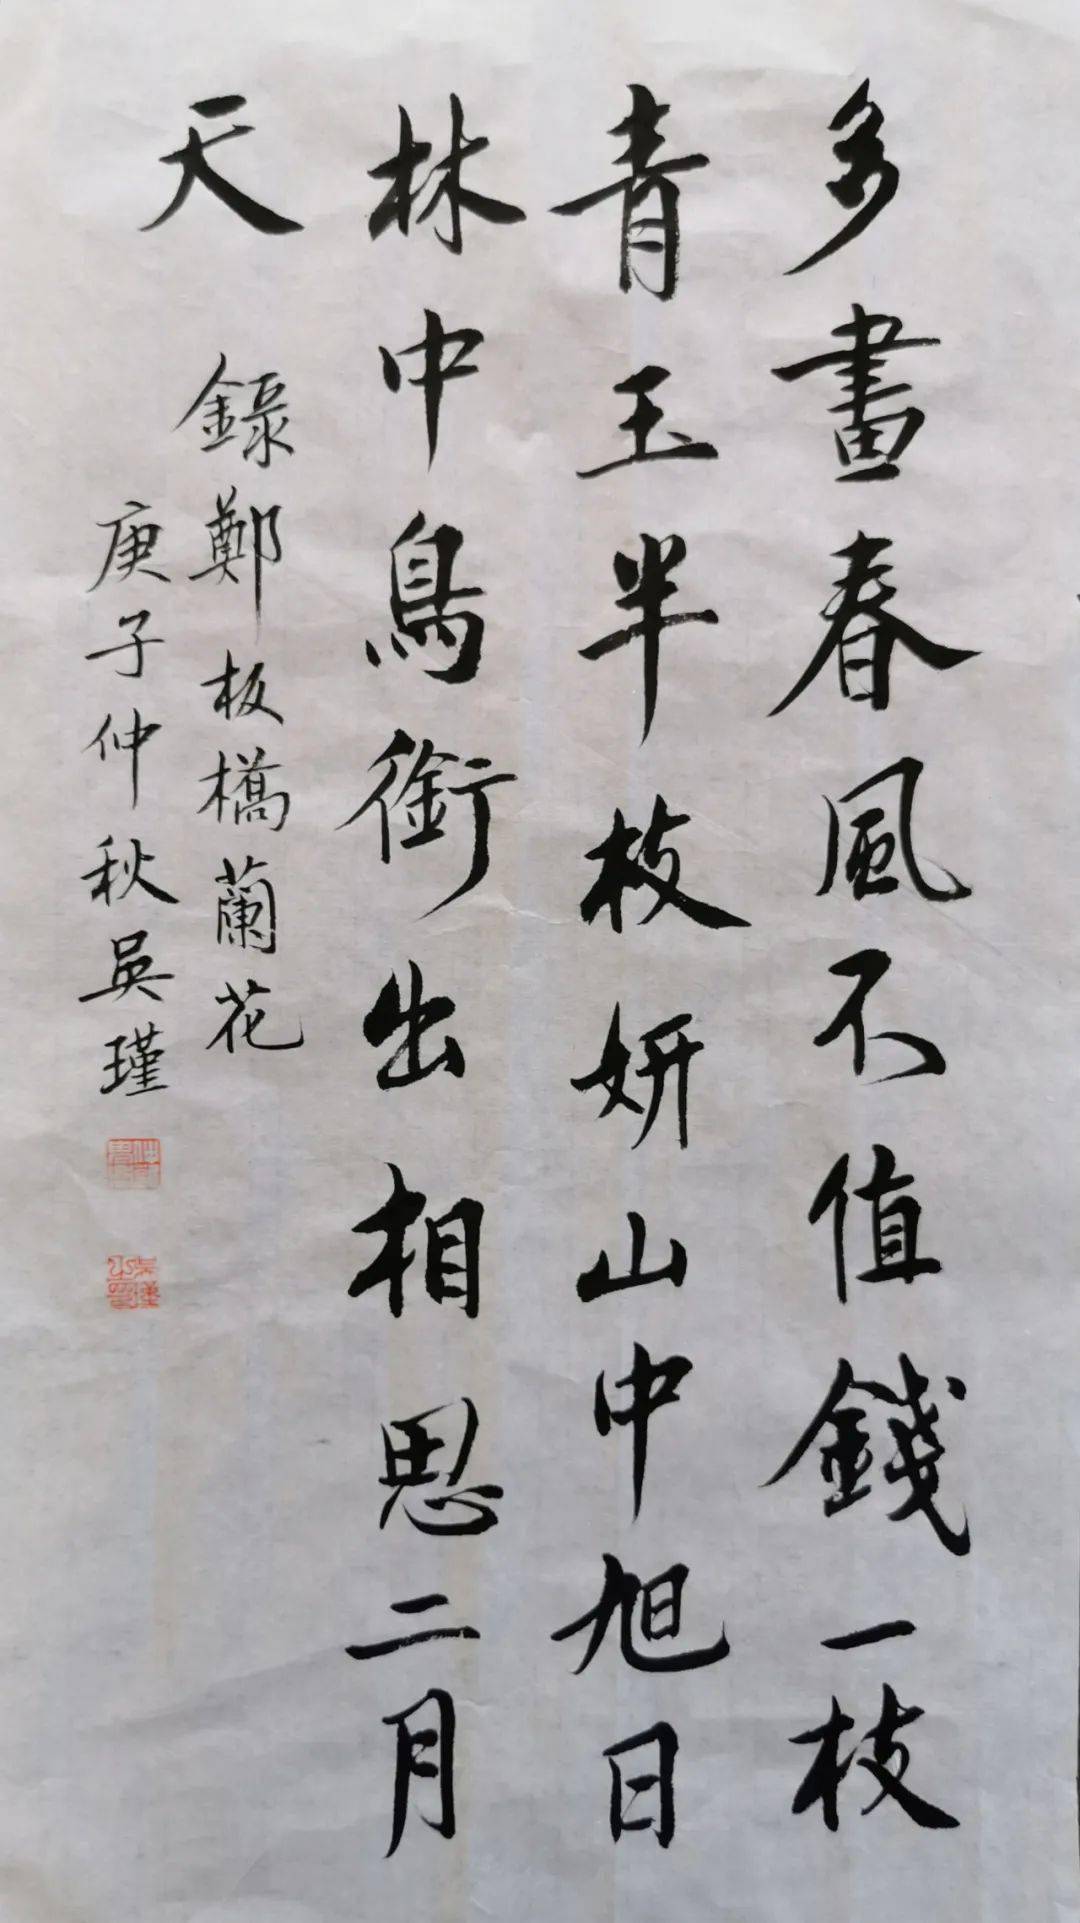 多畫春風不值錢一枝
青玉半枝妍山中旭日
林中鳥銜出相思二月
天
錄鄭板橋蘭花
庚子仲秋吳瑾